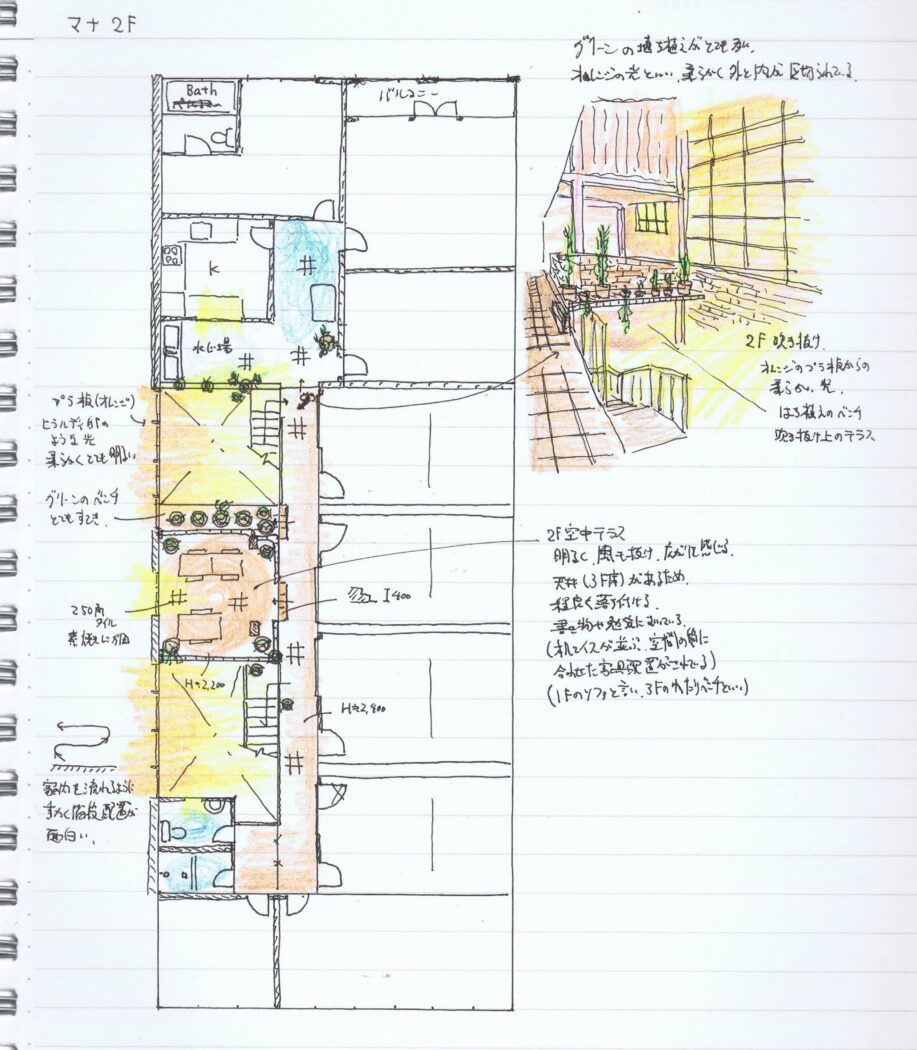 マナ 2F
グリーンの埴ち植えがとても多い。
オレンジの光といい、柔らかく外と内が区切られている。
Bath
バルコニー
K
水廻り場
プラ板(オレンジ)
ような光
柔らかくとても明るい
グリーンのベンチ
とてもすてき。
250角
タイル
H≒2,200
H≒2,400
I400
2F 吹き抜け。
オレンジのプラ板からの
柔らかい光。
はち植えのベンチ
吹き抜け上のテラス
2F空中テラス
明るく、風も抜け、広がりを感じる。
天井(3F床)があるため、
程良く落ち付ける。
書き物や勉強に向いている
(机とイスが並ぶ、空間の質に
合わせた家具配置がされてる)
(1Fのソファと言い、3Fのわたりベンチといい)
家内を流れるように
動く階段配置が
面白い。